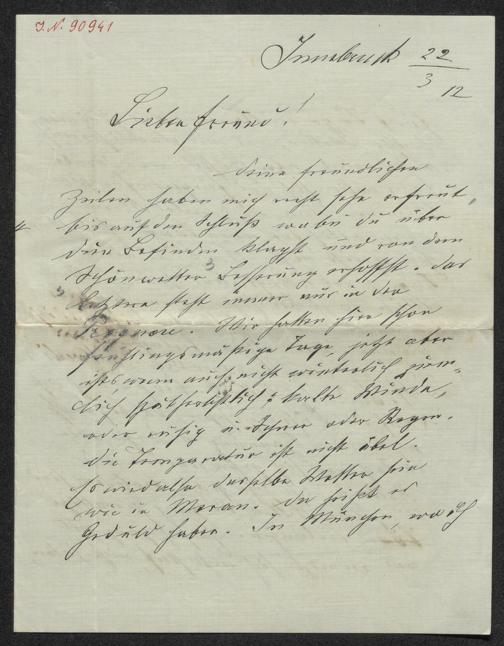 J. N. 90941
Innsbruck 22/3 12
Lieber Freund!
Deine freundlichen
Zeilen haben mich recht sehr erfreut,
bis auf den Schluß wobei du über
dein Befinden klagst und von dem
Schönwetter Besserung erhoffst. Das
letztere steht immer nur in der
Wir hatten hier schon
frühlingsmäßige Tage, jetzt aber
ists wenn auch nicht winterlich ziem-
lich spätherbstlich: kalte Winde,
oder ruhig u. Schnee oder Regen.
Die Temperatur ist nicht übel.
Es wird also dasselbe Wetter sein
wie in Meran. Da heißt es
Geduld haben. In München, wo ich